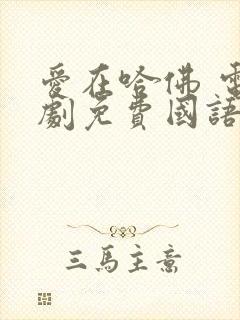 愛在哈佛 電
劇免費國語
三馬主意